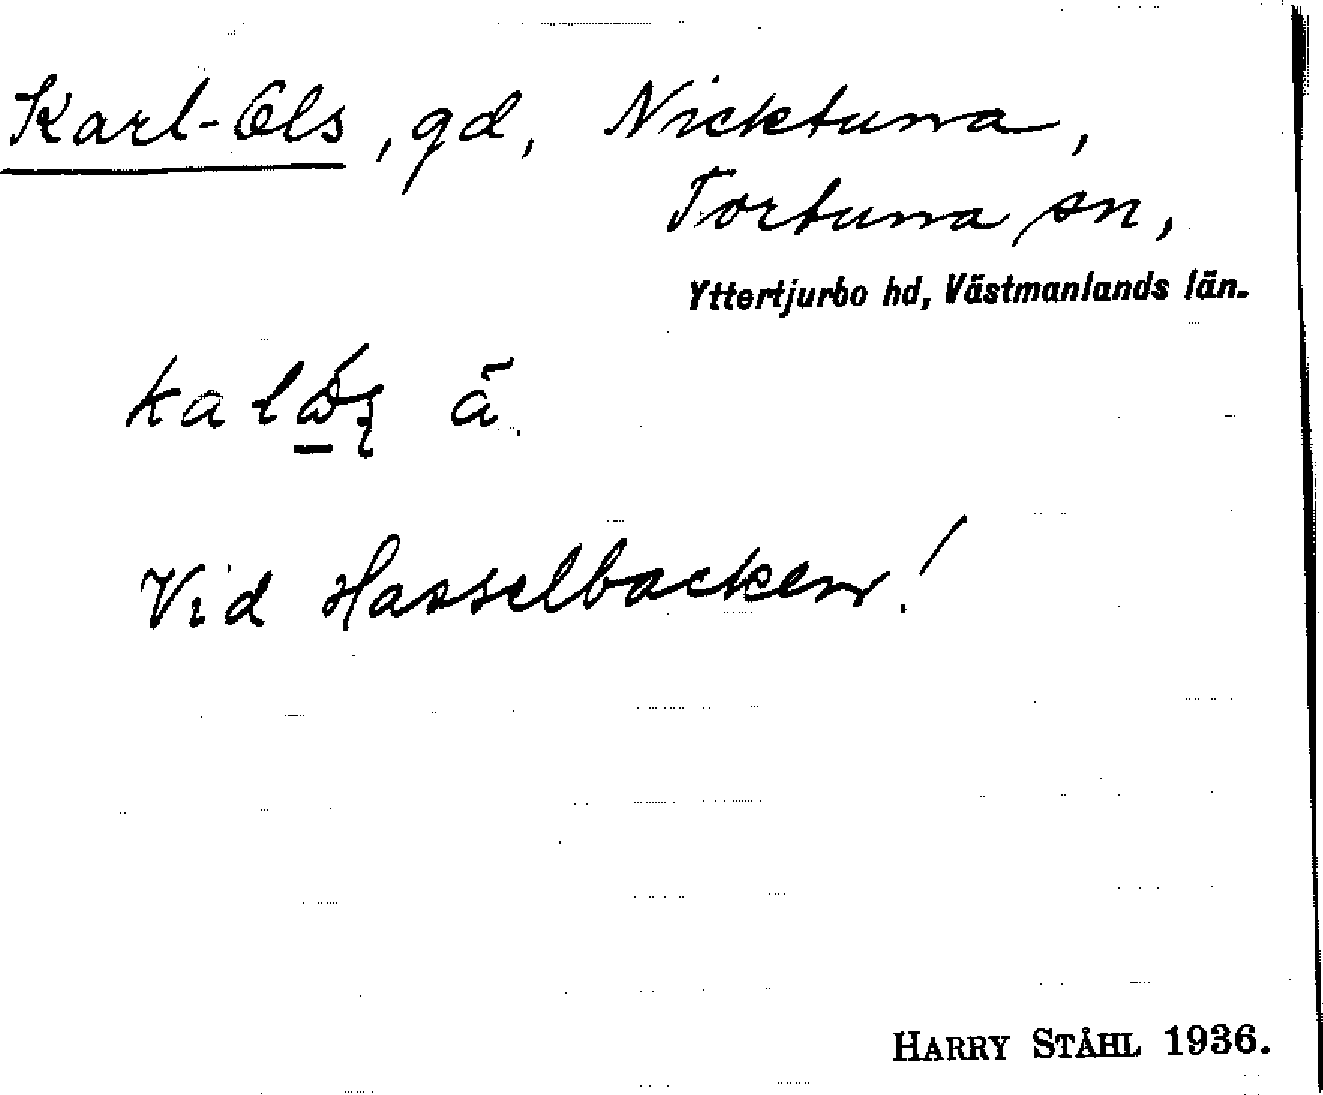 Karl-Ols, gd, Nicktuna,
Tortuna sn,
Yttertjurbo hd, Västmanlands län.
Vid Hasselbacken!
HARRY STÅHL 1936.